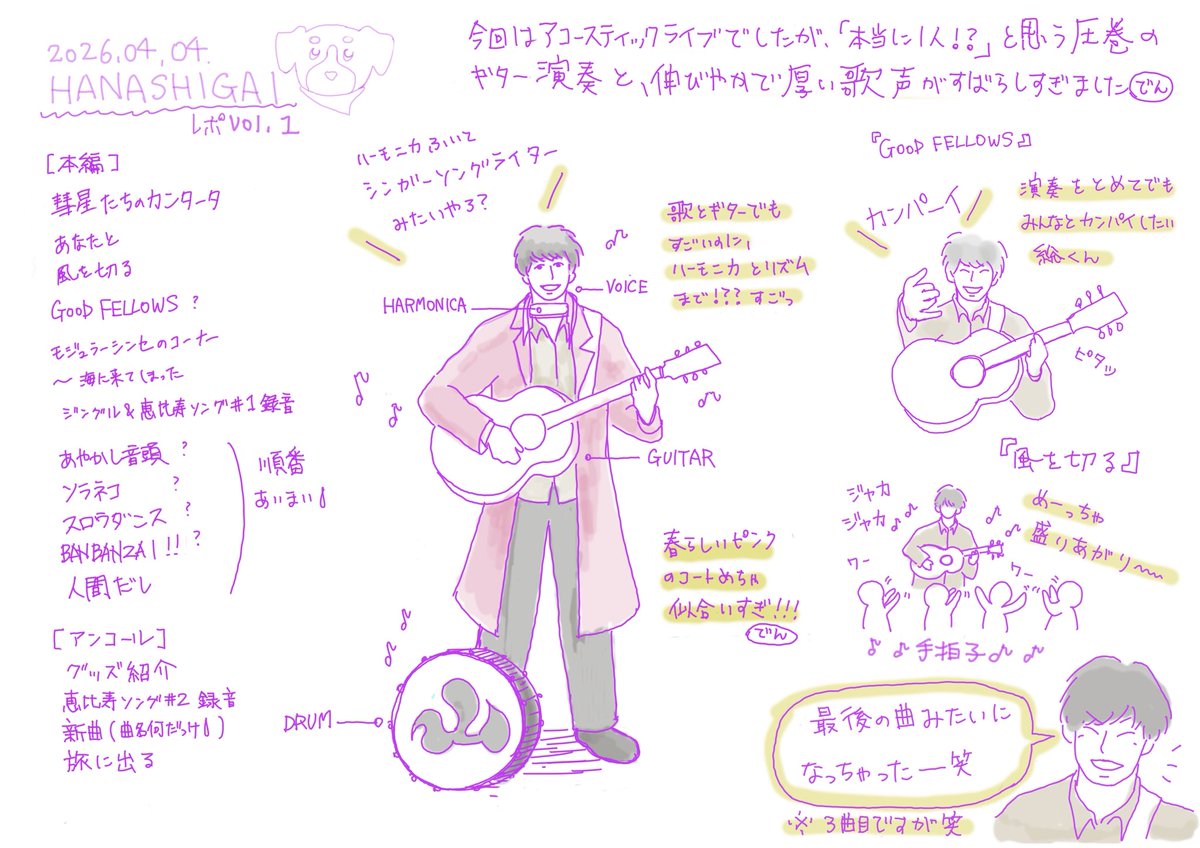 2026.04.04.
HANASHIGAI
レポ vol.1
今回はアコースティックライブでしたが、「本当に1人!?」と思う圧巻の
ギター演奏と、伸びやかで厚い歌声がすばらしすぎました でん
[本編]
彗星たちのカンタータ
あなたと
風を切る
GOOD FELLOWS ?
モジュラーシンセのコーナー
〜海に来てしまった
ジングル&恵比寿ソング#1 録音
あやかし音頭 ?
ソラネコ ?
スロウダンス ?
BANBANZAI!! ?
人間だし
順番
あいまい!
[アンコール]
グッズ紹介
恵比寿ソング#2 録音
新曲(曲名何だっけ!)
旅に出る
ハーモニカふいて
シンガーソングライター
みたいやろ?
HARMONICA
VOICE
GUITAR
DRUM
歌とギターでも
すごいのに、
ハーモニカとリズム
まで!??すごっ
春らしいピンク
のコートめちゃ
似合いすぎ!!!
でん
『GOOD FELLOWS』
カンパーイ
演奏をとめてでも
みんなとカンパイしたい
総くん
ピタッ
『風を切る』
ジャカ
ジャカ
めーっちゃ
盛りあがり〜
ワー
ワー
手拍子
最後の曲みたいに
なっちゃったー笑
※3曲目ですが笑